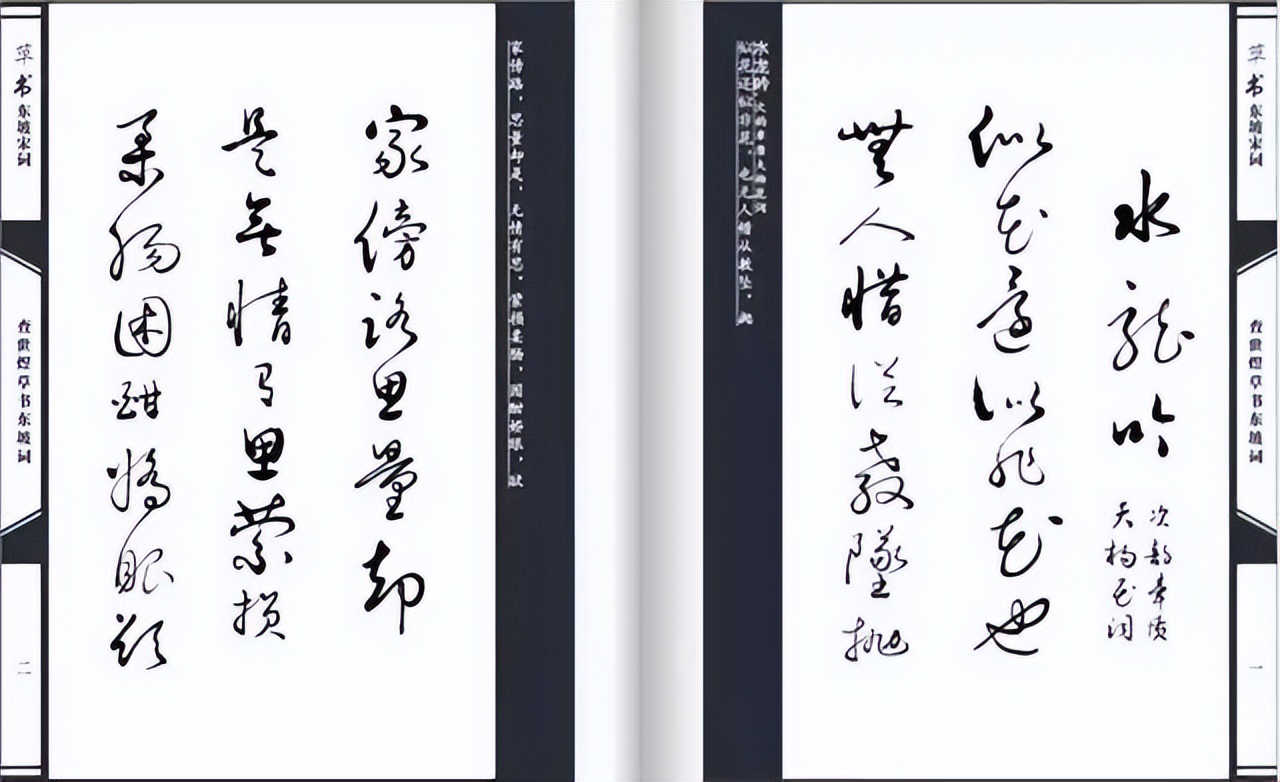 草书东坡宋词
查世煜草书东坡词
一
水龍吟
次韵章质
夫杨花词
似花還似非花也
無人惜從教墜抛
水龙吟
似花还似非花，也无人惜从教坠，抛
家傍路，思量却是，无情有思，萦损柔肠，困酣娇眼，欲
家傍路思量却
是無情有思縈损
柔腸困酣嬌眼欲
草书东坡宋词
查世煜草书东坡词
二